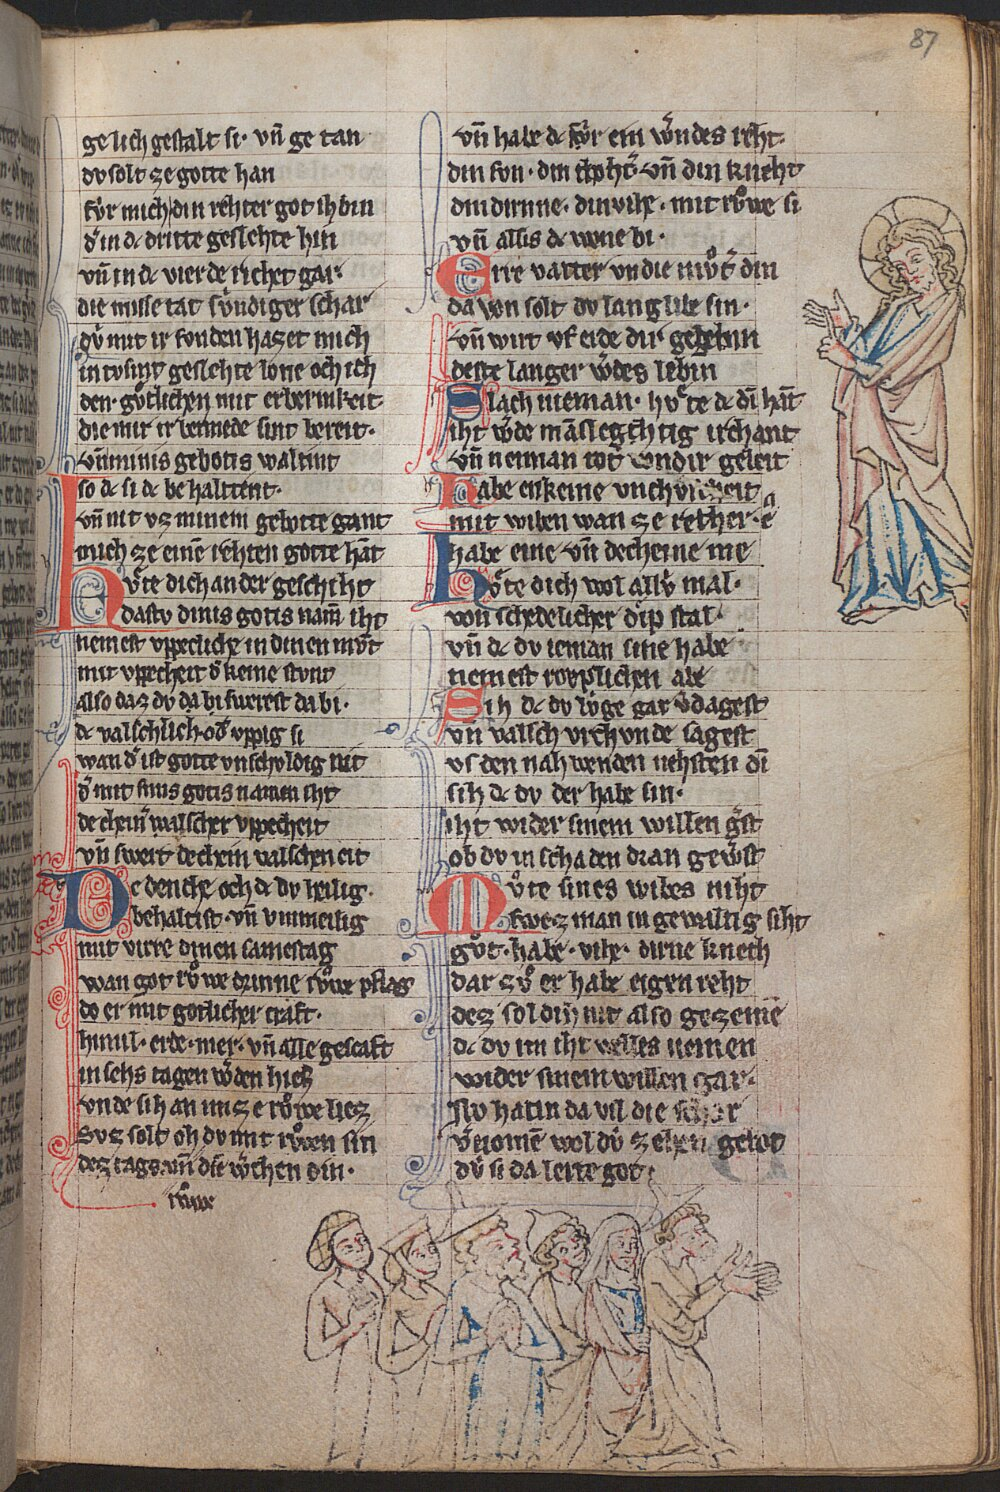 87
ge lich gestalt si· vn̄ ge tan
dv solt ze gotte han
fv̍r mich din rehter got ih bin
d̍ in dc dritte geslehte hin
vn̄ in dc vierde richet gar·
die misse tat sv̍ndiger schar
dv̍ mit ir svnden hazet mich
in tvsint geslehte lone och ich
den· gv̊tlichen mit erbermkeit·
die mir ir bernnde sint bereit·
vn̄ minis gebotis waltint
so dc si dc be halttent·
vn̄ nit vz minem gebotte gant
mich ze einē rehten gotte hāt
Hv̊te dich an der geschiht
dastv dinis gotis nam̄ iht
nemest vppecliche in dinen mv̊t
mit vppecheit d̍ keine stvnt
also daz dv da bi swerest da bi·
dc valschlich· od̍ vppig si
wan d̍ ist gotte vnschvldig nit
d̍ mit sinis gotis namen iht
dechein̍ walscher vppecheit
vn̄ swert dechein valschen eit
Bedenche och dc dv heilig·
behaltist· vn̄ vnmeilig
mit virre dinen samestag
wan got rv̊we drinne rv̊we pflag
do er mit gotlicher craft·
himil· erde· mer· vn̄ alle gescaft
in sehs tagen w̍den hiez
vnde sih an im ze rv̊we liez
Svz solt oh dv mit rv̊wen sin
dez tags an̄ die w̍chen din·
rv̊we
vn̄ habe dc fv̍r ein w̍ndes reht·
din svn· din thoht̍ vn̄ din kneht
din dirnne· din vihe· mit rv̊we si
vn̄ allis dc wone bi·
Erre vatter vn die mv̊t̍ din
da von solt dv lang libe sin·
vn̄ wirt vf erde dir gegebnn
deste langer w̍des lebin
Slach nieman· hv̊te dc dī hāt
iht w̍de māslegchtig irchant
vn̄ neiman tot von dir geleit
Habe enkeine vnchvscheit
mit wiben wan ze rehter· e
habe eine vn̄ decheine me
Hv̊te dich wol allv̍ mal·
von schedelicher dip stal·
vn̄ dc dv ieman sine habe
nemest rovplichen abe
Sih dc dv lv̍ge gar v̍dagest
vn̄ valsch vrchvnde sagest
vf den nah wenden nehsten dī
sih dc dv der habe sin·
iht wider sinem willen g̍st
ob dv in schaden dran gew̍st
Mv̊te sines wibes niht
swez man in gewaltig siht
gv̊t· habe· vihe· dirne knech
dar zv̊ er habe eigen reht
dez sol dir nit also gezemē
dc dv im iht welles nemen
wider sinem willen gar·
Nv hat in da vil die schar
v̍nomē wol dv̍ zehen gebot
dv̍ si da lerte got·